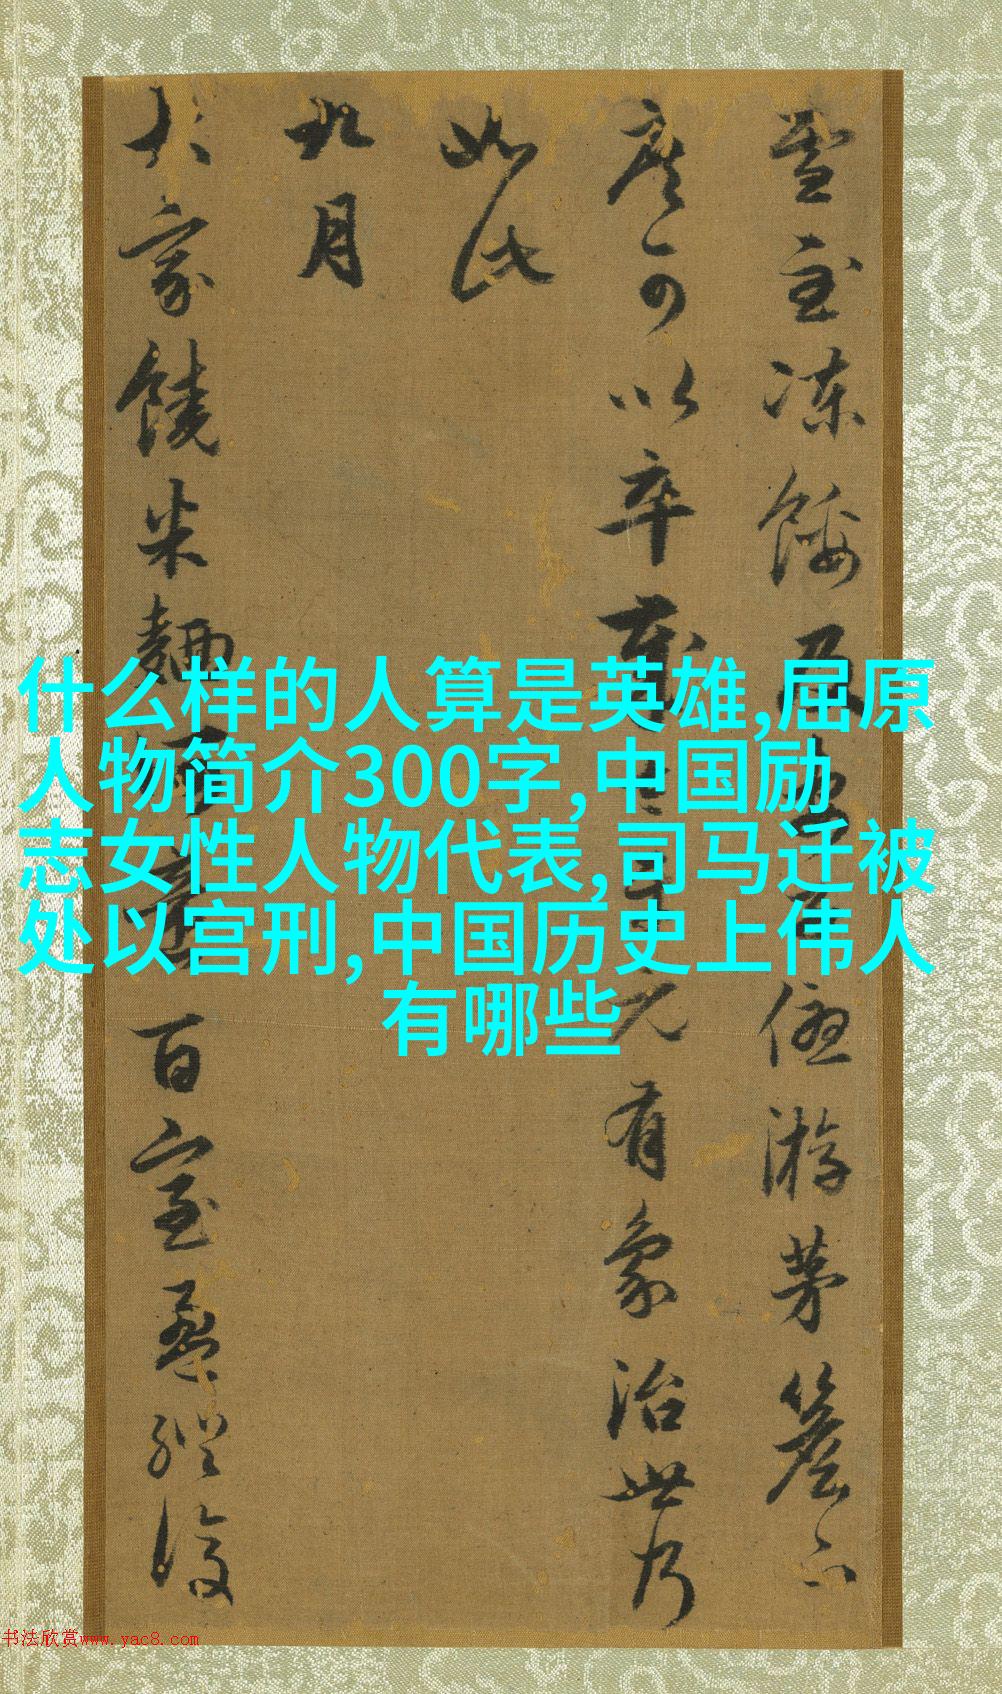 什么样的人算是英雄,屈原
人物简介300字,中国励
志女性人物代表,司马迁被
处以宫刑,中国历史上伟人
有哪些
雪至凍餒 游茅簷下
庶可以卒歲 有象治世乃
如此
九月
大家饒米麵 百室盈縱復
书法欣赏www.yac8.com